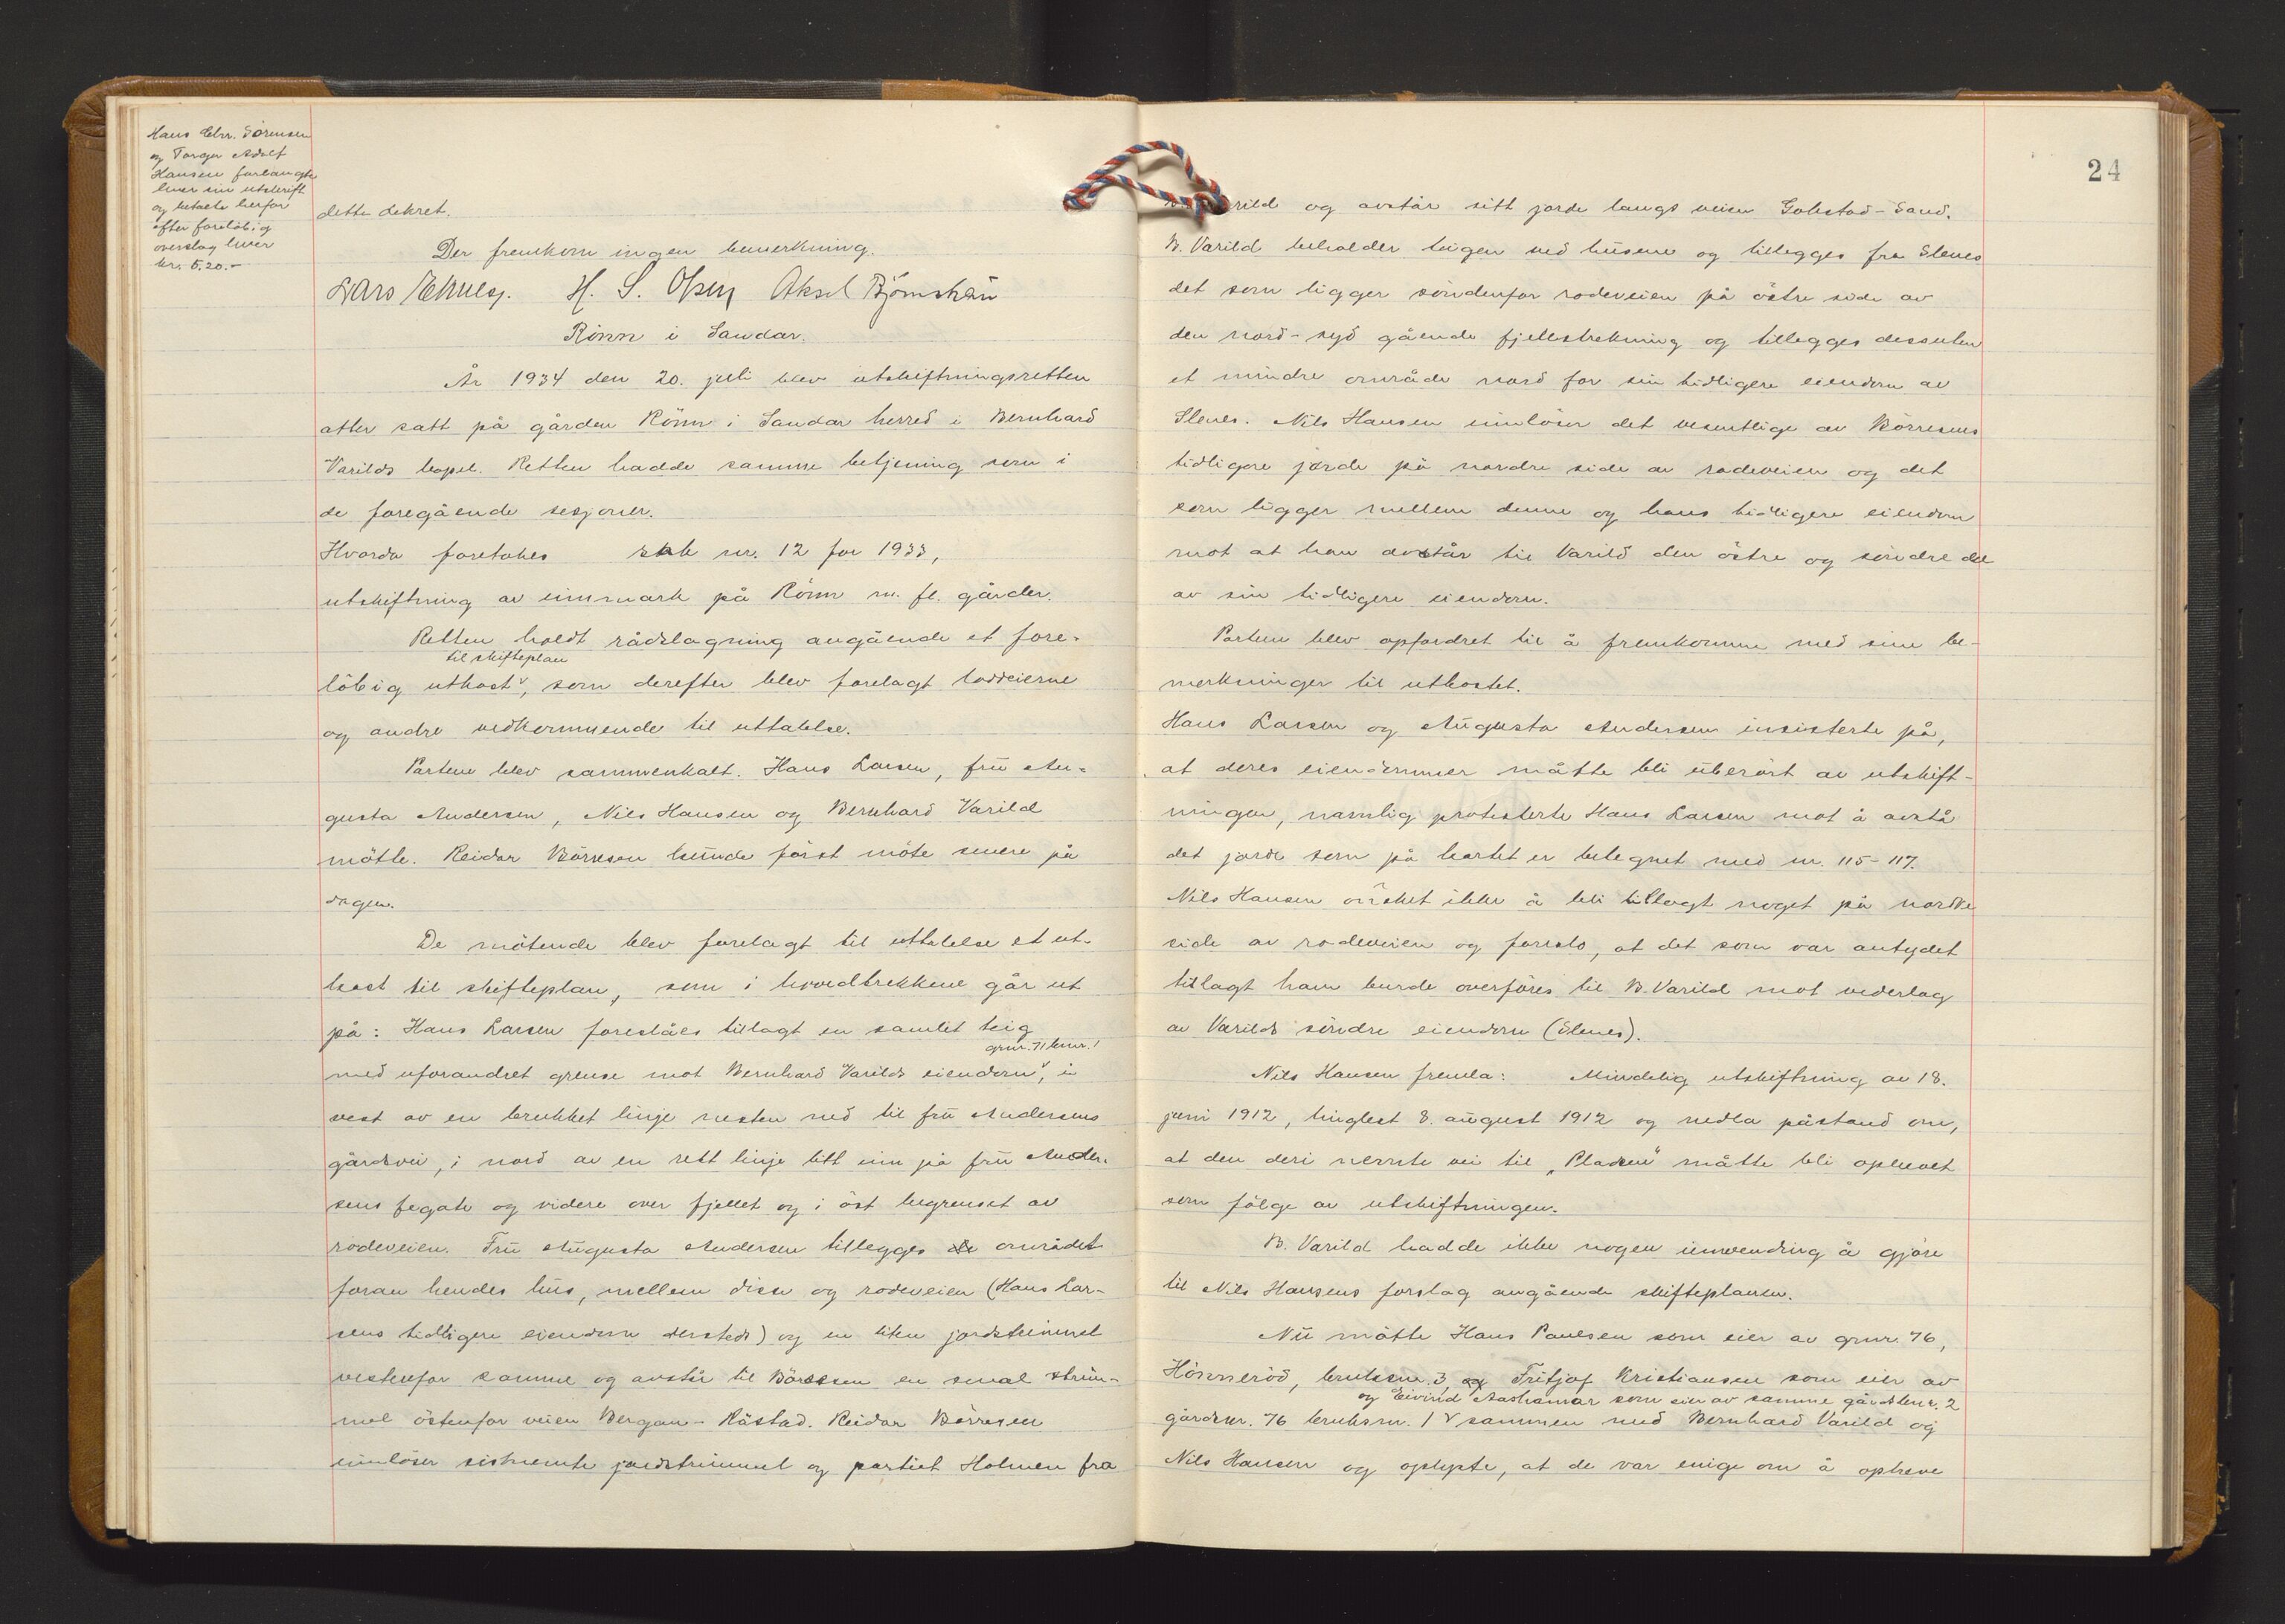 Hans Chr. Sörensen
og Torger Adolf
Hansen forlangte
hver sin utskrift
og betalte herfor
efter foreløbig
overslag hver
kr. 5,20.-
dette dekret.
Der fremkom ingen bemerkning.
Lars H. S. Olsen Aksel
Rönn i Sandar.
År 1934 den 20. juli blev utskiftningsretten
atter satt på gården Rönn i Sandar herred i Bernhard
Varilds bopel. Retten hadde samme betjening som i
de foregående sesjoner.
Hvorda foretokes sak nr. 12 for 1933,
utskiftning av innmark på Rönn m. fl. gårder.
Retten holdt rådslagning angående et fore-
til skifteplan
löbig utkast v, som derefter blev forelagt loddeierne
og andre vedkommende til uttalelse.
Partene blev sammenkalt. Hans Larsen, frü Au-
gusta Andersen, Nils Hansen og Bernhard Varild
mötte. Reidar Börresen kunde först möte senere på
dagen.
De mötende blev forelagt til uttalelse et ut-
kast til skifteplan, som i hovedtrekkene går ut
på: Hans Larsen foreslåes tillagt en samlet teig
gnr. 71 bnr. 1
med uforandret grense mot Bernhard Varilds eiendom v, i
vest av en brukket linje nesten ned til frü Andersens
gårdsvei, i nord av en rett linje litt inn på frü Ander-
sens fegate og videre over fjellet og i öst begrenset av
rodeveien. Frü Augusta Andersen tillegges området
foran hendes hus, mellem disse og rodeveien (Hans Lar-
sens tidligere eiendom dersteds) og en liten jordstrimmel
vestenfor samme og avstår til Börresen en smal strim-
mel östenfor veien Bergan - Råstad. Reidar Börresen
innlöser sistnevnte jordstrimmel og partiet Holmen fra
24
Varild og avstår sitt jorde langs veien Gokstad - Sand.
B. Varild beholder teigen ved husene og tillegges fra Slenes
det som ligger söndenfor rodeveien på östre side av
den nord - syd gående fjellstrekning og tillegges dessuten
et mindre område nord for sin tidligere eiendom av
Slenes. Nils Hansen innlöser det vesentlige av Börresens
tidligere jorde på nordre side av rodeveien og det
som ligger mellem denne og hans tidligere eiendom
mot at han avstår til Varild den östre og söndre del
av sin tidligere eiendom.
Partene blev opfordret til å fremkomme med sine be-
merkninger til utkastet.
Hans Larsen og Augusta Andersen insisterte på,
at deres eiendommer måtte bli uberört av utskift-
ningen, navnlig protesterte Hans Larsen mot å avstå
det jorde som på kartet er betegnet med nr. 115 - 117.
Nils Hansen önsket ikke å bli tillagt noget på nordre
side av rodeveien og foreslo, at det som var antydet
tillagt ham burde overföres til B. Varild mot vederlag
av Varilds söndre eiendom (Slenes).
Nils Hansen fremla: Mindelig utskiftning av 18.
juni 1912, tinglest 8. august 1912 og nedla påstand om,
at den deri nevnte vei til „Pladsen" måtte bli ophevet
som fölge av utskiftningen.
B. Varild hadde ikke nogen innvending å gjöre
til Nils Hansens forslag angående skifteplanen.
Nü mötte Hans Paulsen som eier av gnr. 76,
Hönneröd, bruksnr. 3 og Fritjof Kristiansen som eier av
og Eivind Aashamar som eier av samme gårds bnr. 2
gårdsnr. 76 bruksnr. 1 v sammen med Bernhard Varild og
Nils Hansen og oplyste, at de var enige om å opheve